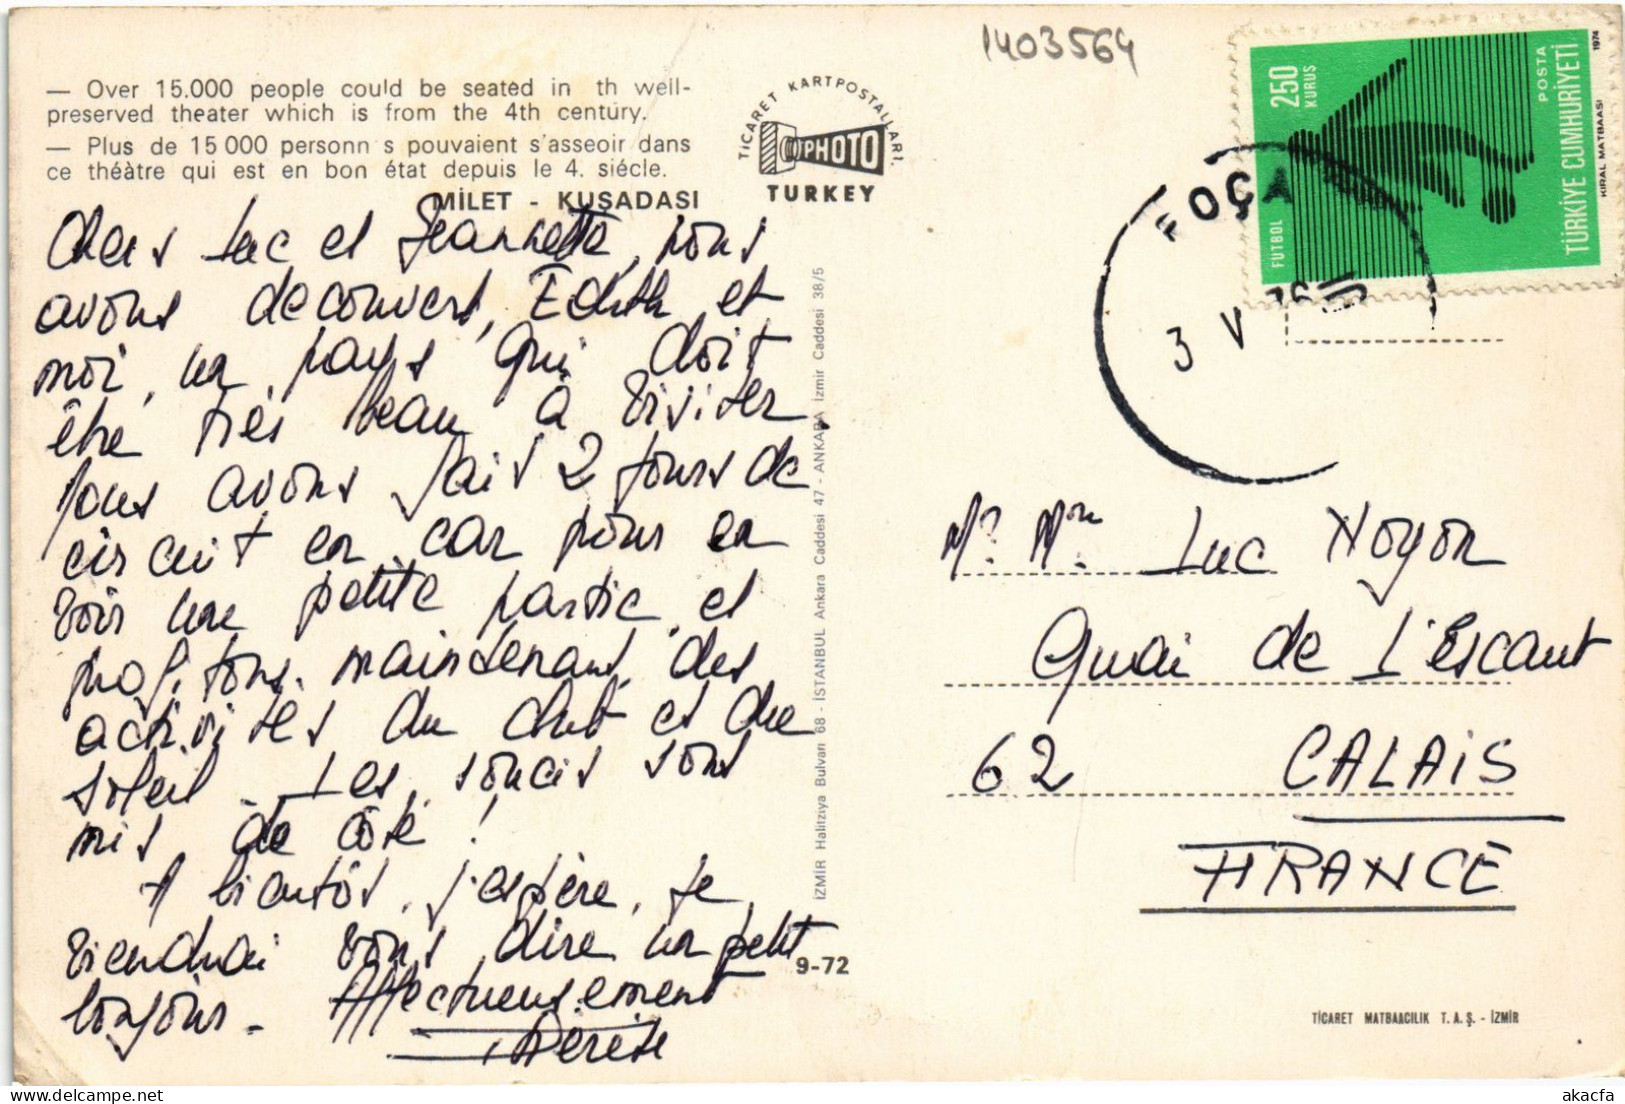 1403564
— Over 15.000 people could be seated in th well-
preserved theater which is from the 4th century.
— Plus de 15 000 personn s pouvaient s'asseoir dans
ce théâtre qui est en bon état depuis le 4. siécle.
MİLET - KUŞADASI
TİCARET KARTPOSTALLARI.
PHOTO
TURKEY
Chers Luc et Jeannette, nous
avons decouvert, Edith et
moi, un pays qui doit
être très beau à visiter
Nous avons fait 2 jours de
circuit en car pour en
voir une petite partie et
profitons maintenant des
activités du club et du
soleil. Les soucis sont
mis de côté !
A bientôt, j'espère, je
viendrai vous dire un petit
bonjour. Affectueusement
İZMİR Halitziya Bulvarı 68 - İSTANBUL Ankara Caddesi 47 - ANKARA İzmir Caddesi 38/5
9-72
250
KURUŞ
FUTBOL
POSTA
TÜRKİYE CUMHURİYETİ
KIRAL MATBAASI
1974
FOÇA
3 V 76
Mr Mme Luc Noyon
Quai de L'Escaut
62 CALAIS
FRANCE
TİCARET MATBAACILIK T. A. Ş. - İZMİR
akacfa